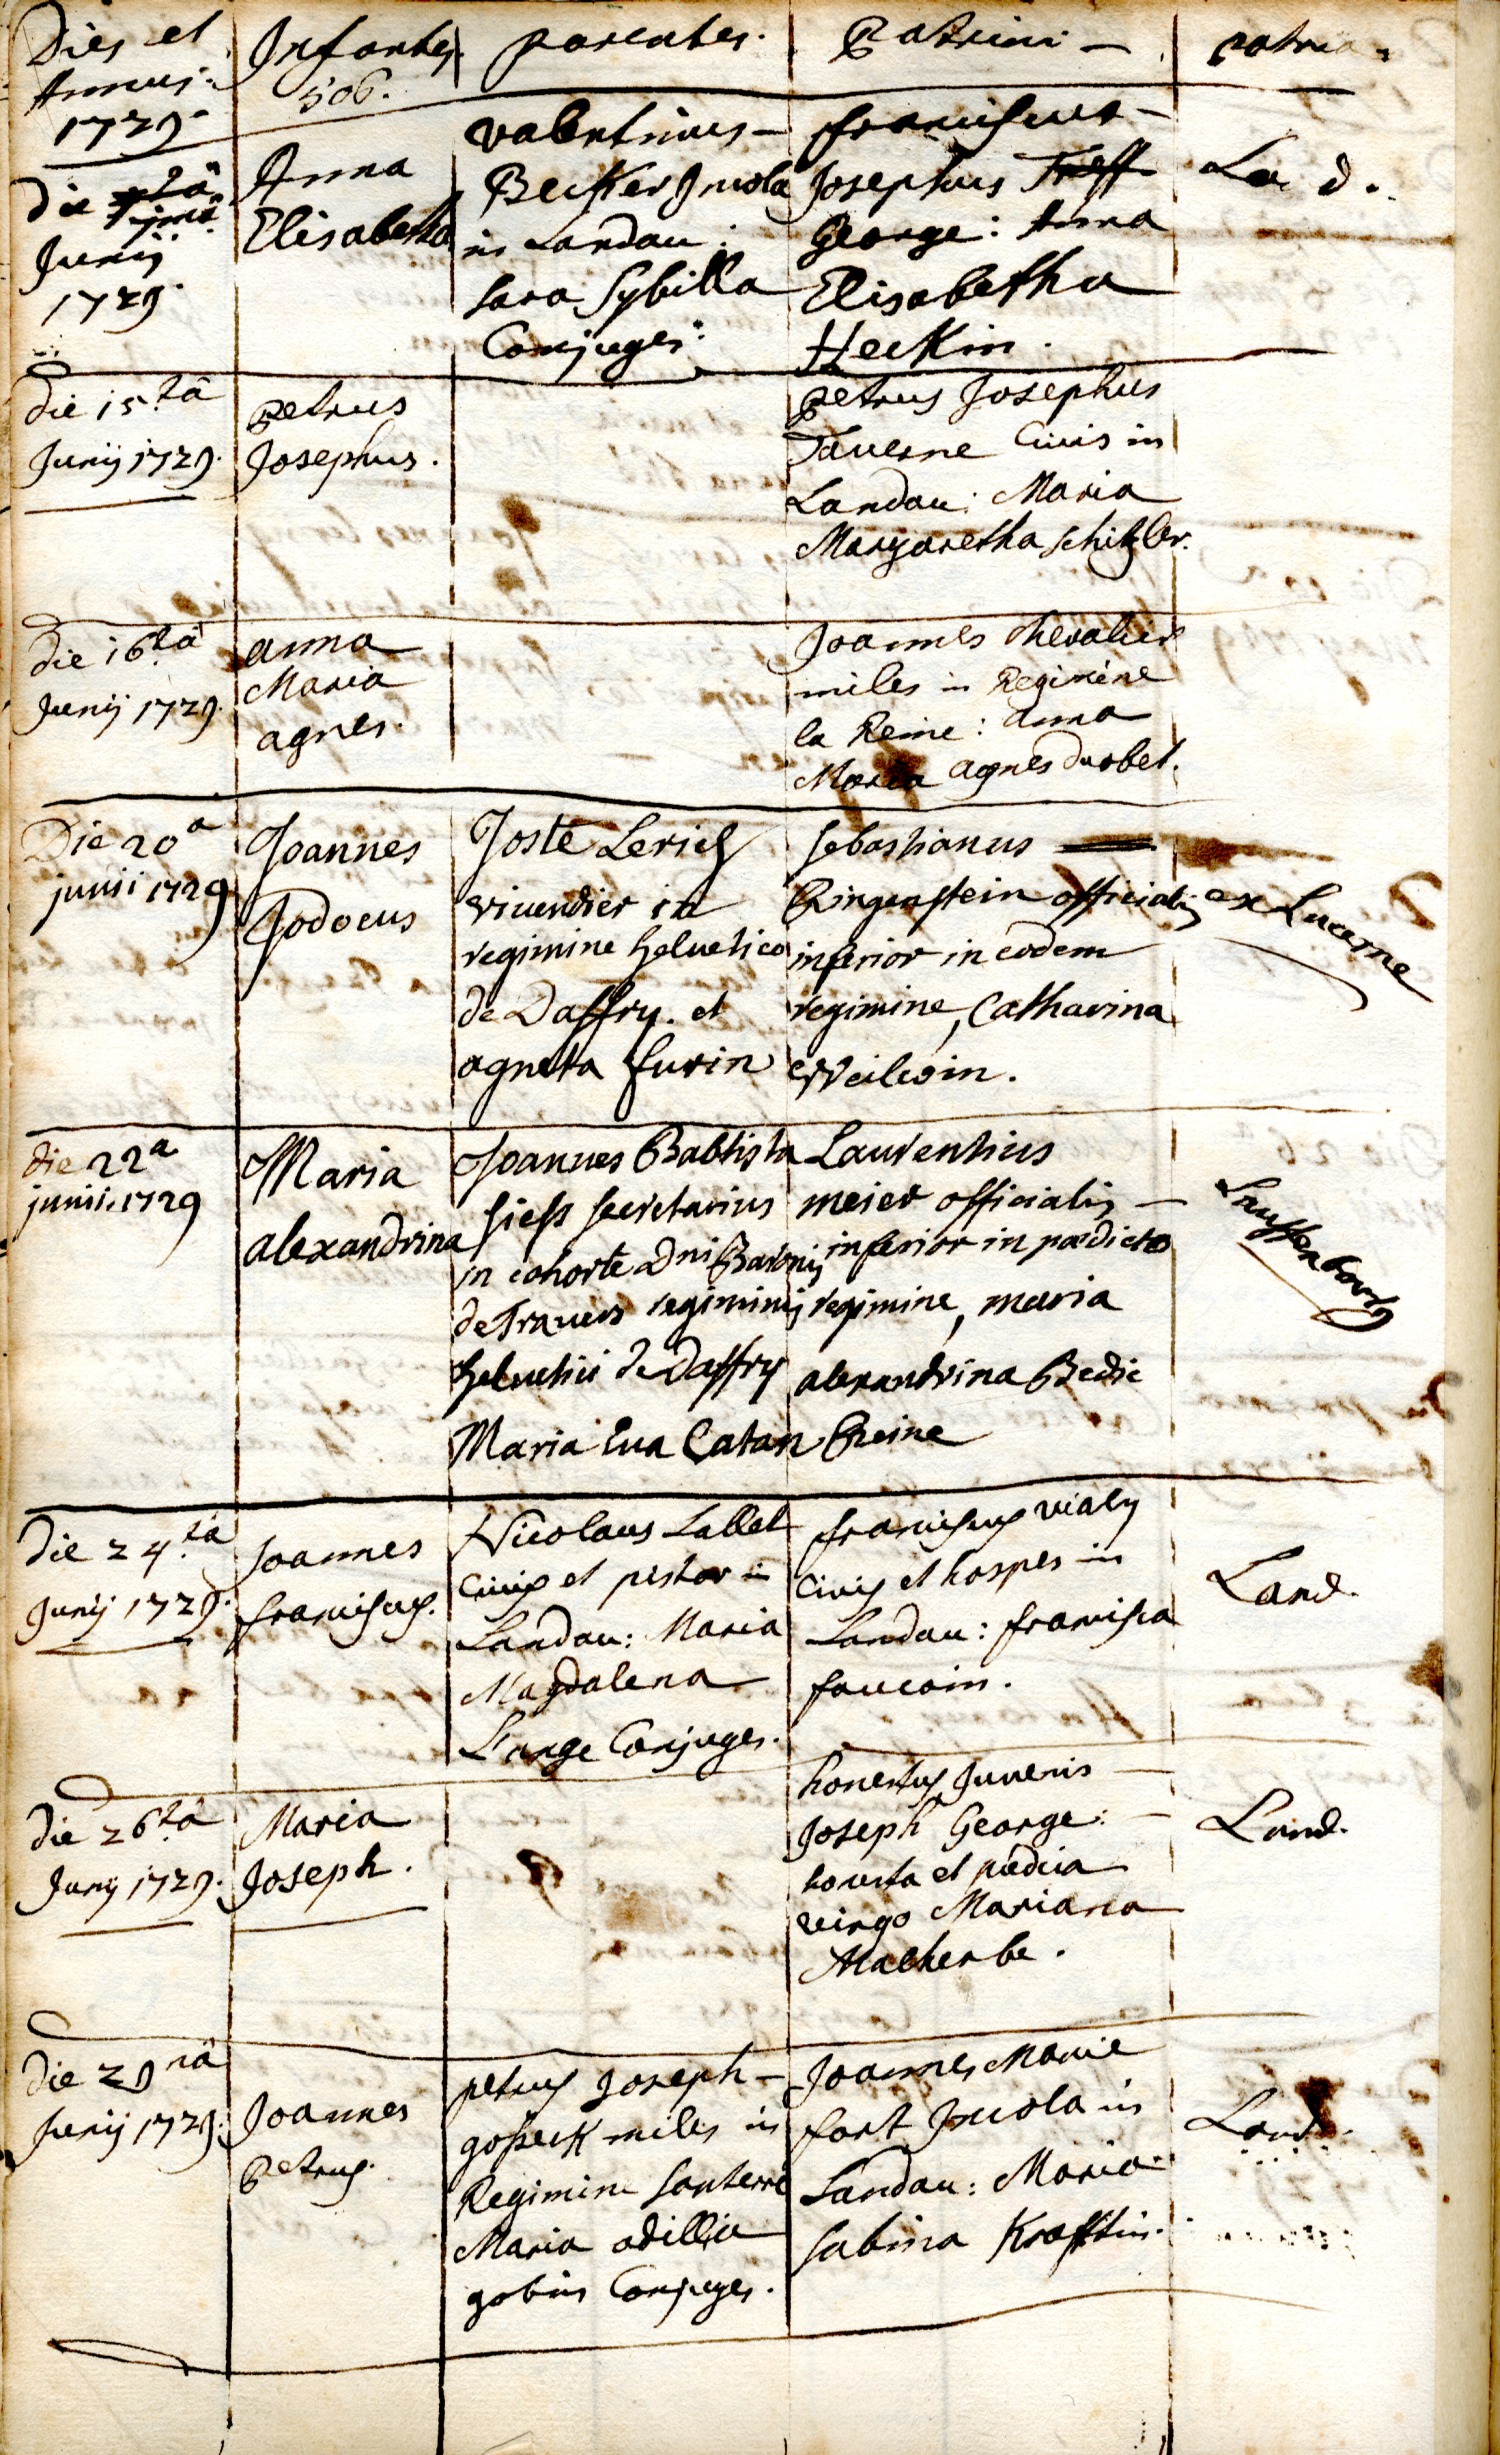 Dies et
Annus.
1729.
Infantes.
506.
parentes.
Patrini
patria.
die
Junij
1729.
Anna
Elisabetha
valentinus
Becker Jncola
in Landau:
sara Sybilla
Conjuges:
franciscus
Josephus Treff
George: Anna
Elisabetha
Heckin.
La d.
die 15.ta
Junij 1729.
Petrus
Josephus.
Petrus Josephus
Tauerne Ciuis in
Landau: Maria
Margaretha schitzler.
die 16.ta
Junij 1729.
anna
Maria
agnes.
Joannes chevalier
miles in Regimine
la Reine: anna
Maria agnes Durbet.
Die 20a
junii 1729
Joannes
Jodocus
Joste Lerich
viuendier in
regimine helvetico
de Daffry. et
agneta furin
sebastianus
Ringenstein officialis
inferior in eodem
regimine, Catharina
ex Lucerne
die 22a
junii. 1729
Maria
alexandrina
Joannes Babtista
siess secretarius
in cohorte Dni Baronis
de Travers regiminis
helvetici de Daffry
Maria Eva Catan
Laurentius
meier officialis
inferior in praedicto
regimine, maria
alexandrina Bedie
Reine
Lauffenbourg
die 24.ta
Junij 1729.
Joannes
franciscus.
Nicolaus Lallet
Ciuis et pistor in
Landau: Maria
Magdalena
L'ange Conjuges.
franciscus vialy
Ciuis et hospes in
Landau: francisca
faucoin.
Land.
die 26.ta
Junij 1729.
Maria
Joseph.
honestus Juvenis
Joseph George:
honesta et pudica
virgo Mariana
Malherbe.
Land.
die 29.na
Junij 1729.
Joannes
Petrus.
petrus Joseph
gosseck miles in
Regimine santerre
Maria odillia
gobin Conjuges.
Joannes Marie
fort Jncola in
Landau: Maria
sabina Krafftin.
Land.